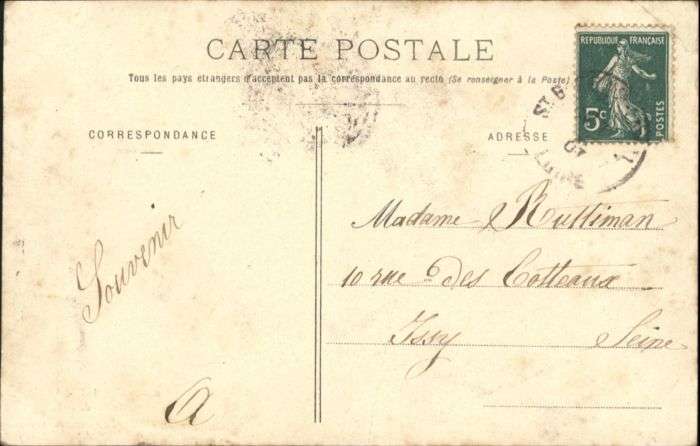 CARTE POSTALE
Tous les pays etrangers n'acceptent pas la correspondance au recto (Se renseigner à la Poste)
REPUBLIQUE FRANÇAISE
5c
POSTES
CORRESPONDANCE
ADRESSE
ST
07
Madame Ruttiman
10 rue des Cotteaux
Issy Seine
Souvenir
A